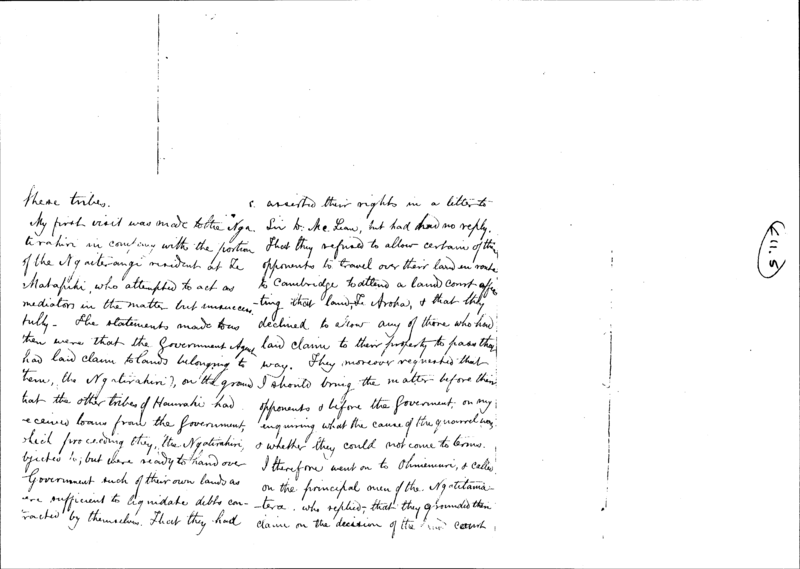 these tribes.
My first visit was made to the Nga-
tirahiri in company with the portion
of the Ngaiterangi resident at Te
Matapihi, who attempted to act as
mediators in the matter but unsuccess-
fully - The statements made to us
then were that the Government Agent
had laid claim to lands belonging to
them, (the Ngatirahiri), on the ground
that the other tribes of Hauraki had
eceived loans from the Government,
hich proceeding they, the Ngatirahiri,
bjected to; but were ready to hand over
Government such of their own lands as
ere sufficient to liquidate debts con-
racted by themselves. That they had
asserted their rights in a letter to
Sir D. McLean, but had had no reply.
That they refused to allow certain of their
opponents to travel over their land en route
to Cambridge to attend a land court affec
-ting that land, Te Aroha, & that they
declined to allow any of those who had
laid claim to their property to pass they
way. They moreover requested that
I should bring the matter before their
opponents & before the Goverment, on my
enquiring what the cause of the quarrel was,
& whether they could not come to terms.
I therefore went on to Ohinemuri, & called
on the principal men of the Ngatitama-
-tera. who replied, that they grounded their
claim on the decision of the court
K11.5